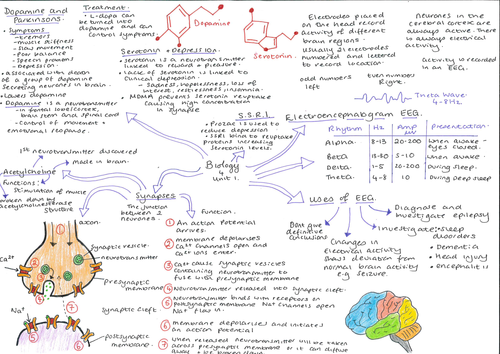 Dopamine and
Parkinsons:
• Symptoms
- tremors
- muscle stiffness
- slow movement
- Poor balance
- speech problems
- Depression
• associated with death
of a group of dopamine
secreting neurones in brain.
• Less dopamine
• Dopamine is a neurotransmitter
- in frontal lobe/cortex,
brain stem and spinal cord
- Control of movement +
emotional response.
Treatment:
- L-dopa can
be turned into
dopamine and can
control symptoms.
Dopamine
Serotonin + Depression.
• Serotonin is a neurotransmitter
linked to reward + pleasure.
• Lack of serotonin is linked to
clinical depression.
- Sadness, hopelessness, loss of
interest, restlessness, insomnia.
• MDMA prevents serotonin reuptake
causing high concentration
in synapse
Serotonin.
S.S.R.I
• Prozac is used to
reduce depression
• SSRI bind to reuptake
proteins increasing
serotonin levels.
Electrodes placed
on the head record
activity of different
brain regions.
Usually 21 electrodes
numbered and lettered
to record location
odd numbers
left
even numbers
Right.
Neurones in the
cerebral cortex are
always active. There
is always electrical
activity.
activity is recorded
in an EEG.
Theta Wave
4-8Hz
Electroencephalogram EEG.
Rhythm Hz Amp Presentation
Alpha. 8-13 20-200 When awake
eyes closed.
Beta 13-30 5-10 When awake.
Delta 1-5 20-200 During sleep.
Theta 4-8 10 During deep sleep
Biology
Unit 4.
1st neurotransmitter discovered
Made in brain.
Acetylcholine
Functions:
Stimulation of muscle
broken down by
acetylcholinesterase
Structure
Synapses
The junction
between 2
neurones.
Function.
axon.
synaptic vesicle
neurotransmitter
Ca2+
presynaptic
membrane
Na+
synaptic cleft
postsynaptic
membrane.
1 An action potential
arrives.
2 membrane depolarises
Ca2+ channels open and
Ca2+ ions enter.
3 Ca2+ cause synaptic vesicles
containing neurotransmitter to
fuse with presynaptic membrane
4 Neurotransmitter released into synaptic cleft
5 Neurotransmitter binds with receptors on
postsynaptic membrane Na+ channels open
Na+ flow in.
6 membrane depolarises and initiates
an action potential
7 When released neurotransmitter will be taken
across presynaptic membrane or it can diffuse
away
Uses of EEG.
Don't give
definitive
conclusions
Changes in
electrical activity
shows deviation from
normal brain activity
eg seizure.
Diagnose and
investigate epilepsy
Investigate sleep
disorders
• Dementia
• Head injury
• encephalitis